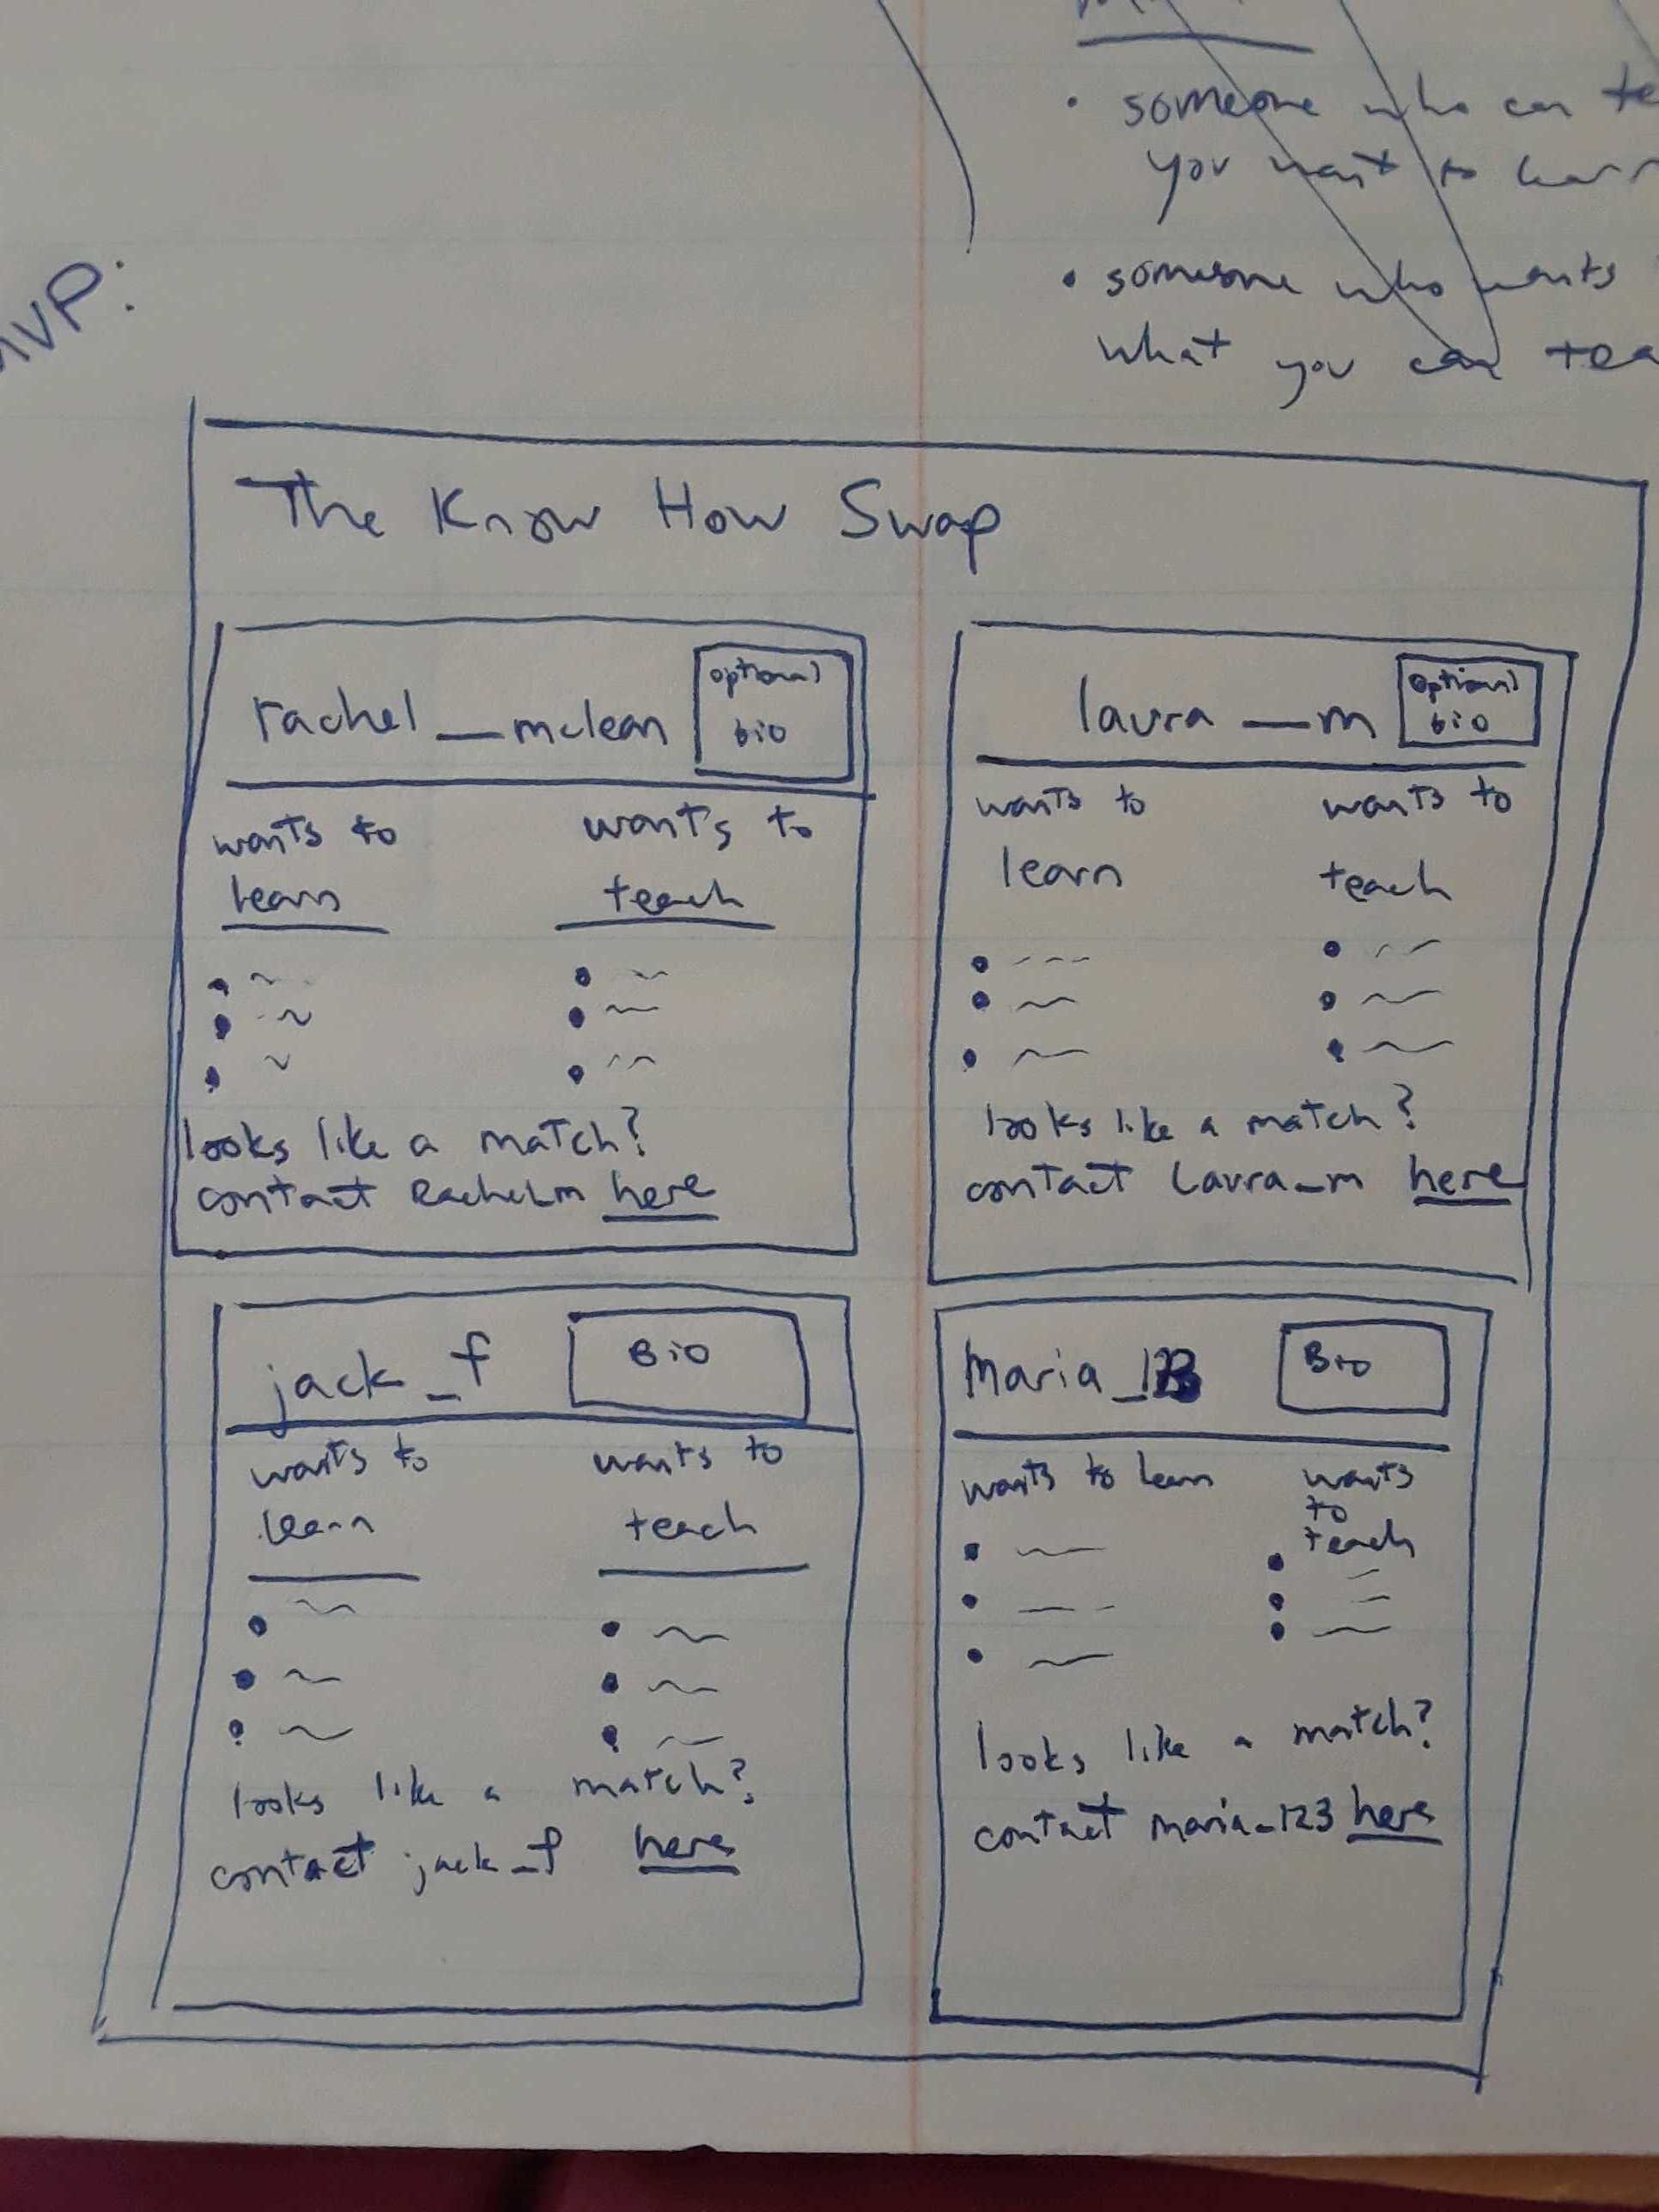 someone who can te
you want to lear
someone who wants
what you can tea
MVP:
The Know How Swap
rachel_mclean
optional
bio
wants to
learn
wants to
teach
looks like a match?
contact Rachel_m here
laura_m
optional
bio
wants to
learn
wants to
teach
looks like a match?
contact Laura_m here
jack_f
Bio
wants to
learn
wants to
teach
looks like a match?
contact jack_f here
Maria_123
Bio
wants to learn
wants
to
teach
looks like a match?
contact maria_123 here